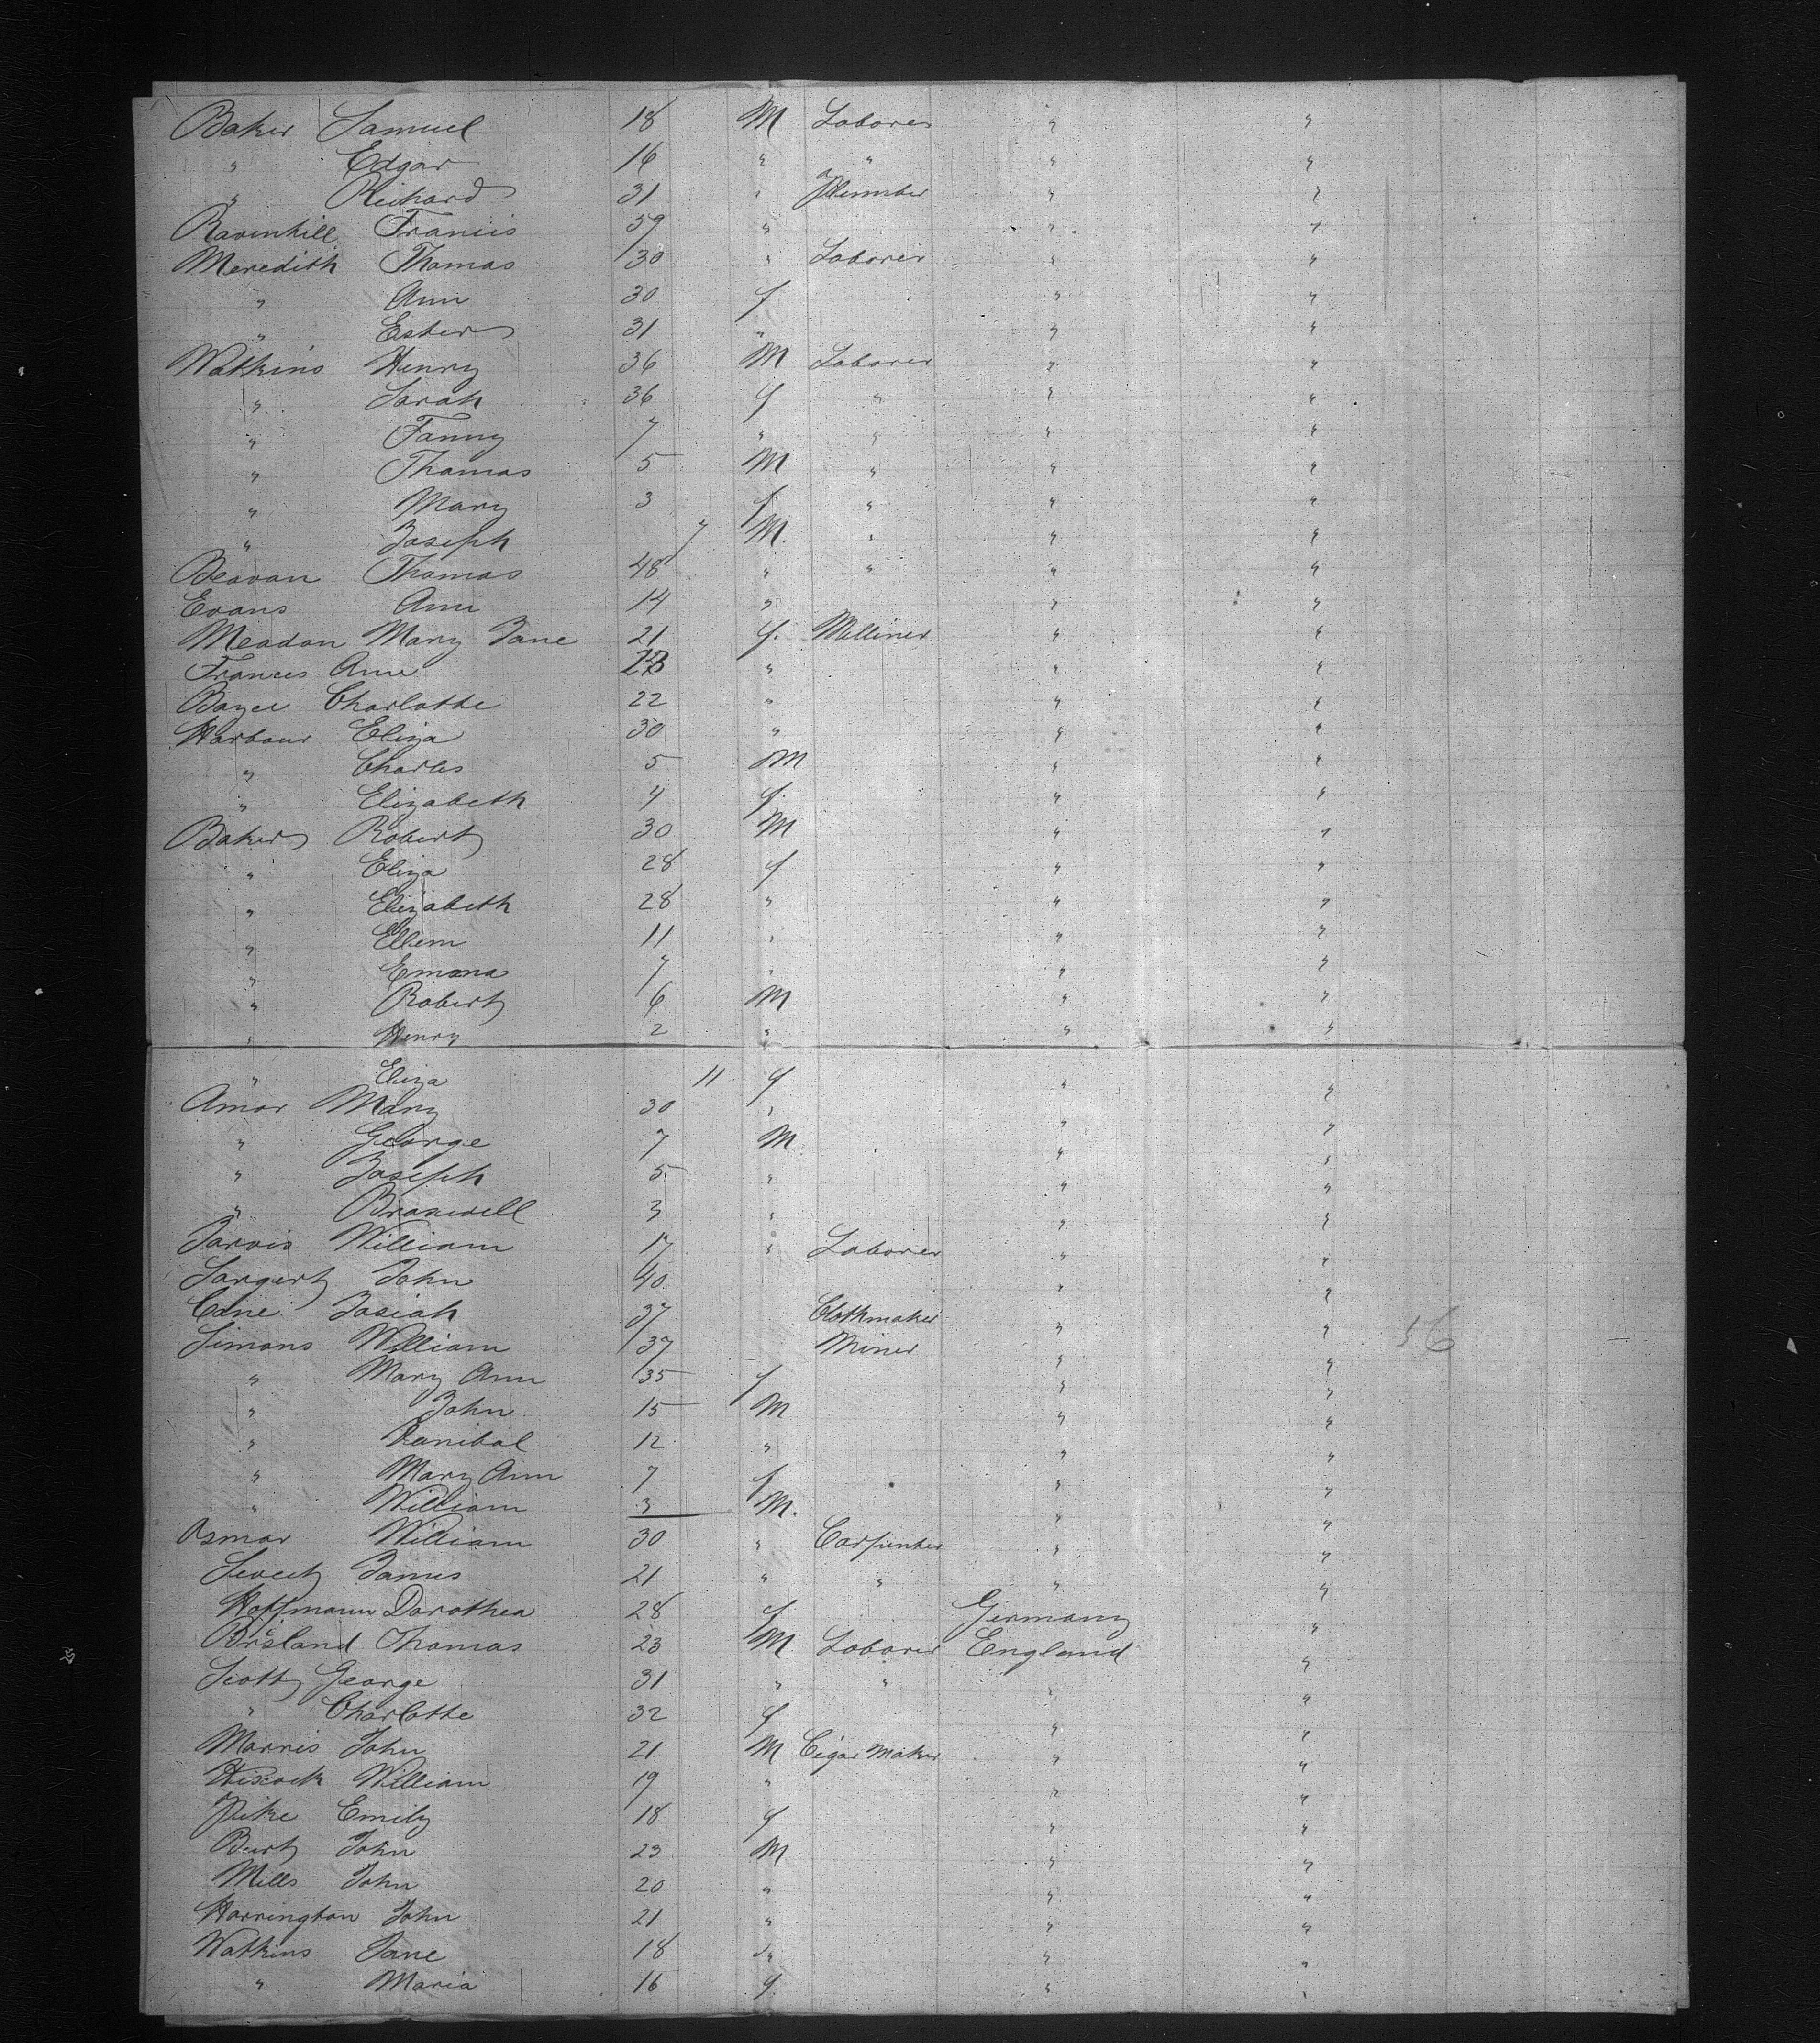 Baker Samuel 18 M Laborer " "
" Edgar 16 " " " "
" Richard 31 " Plumber " "
Ravenhill Francis 59 " " "
Meredith Thomas 30 " Laborer " "
" Ann 30 f " "
" Ester 31 " " "
Watkins Henry 36 M Laborer " "
" Sarah 36 f " " "
" Fanny 7 " " " "
" Thomas 5 M " " "
" Mary 3 f " " "
" Joseph 7 M. " " "
Beavan Thomas 48 " " " "
Evans Ann 14 " " "
Meadon Mary Jane 21 f. Milliner " "
Frances Ann " " "
Charlotte 22 " " "
Harbour Eliza 30 " " "
" Charles 5 M " "
" Elizabeth 4 f. " "
Baker Robert 30 M " "
" Eliza 28 f " "
" Elizabeth 28 " " "
" Ellem 11 " " "
" Emma 7 " " "
" Robert 6 M " "
" Henry 2 " " "
" Eliza 11 f " "
Amor Mary 30 " " "
" George 7 M " "
" Joseph 5 " " "
" 3 " " "
Jarvis William 17 " Laborer " "
Sargert John 40 " "
Cane Josiah 37 Clothmaker " "
Simons William 37 Miner " " 56
" Mary Ann 35 f " "
" John 15 M " "
" Hanibal 12 " " "
" Mary Ann 7 f " "
" William 3 M. " "
Osmar William 30 " Carpenter " "
Sweet James 21 " " " "
Hoffmann Dorothea 28 f Germany "
Thomas 23 M Laborer England "
Scott George 31 " " " "
" Charlotte 32 f " "
Morris John 21 M Cigar Maker " "
Hiscock William 19 " " "
Pike Emily 18 f " "
Burt John 23 M " "
Mills John 20 " " "
Harrington John 21 " " "
Watkins Jane 18 " " "
" Maria 16 f " "